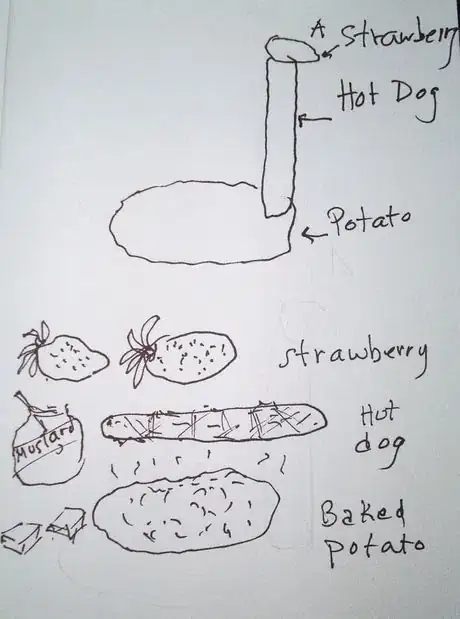 A
Strawberry
Hot Dog
Potato
strawberry
Mustard
Hot
dog
Baked
potato